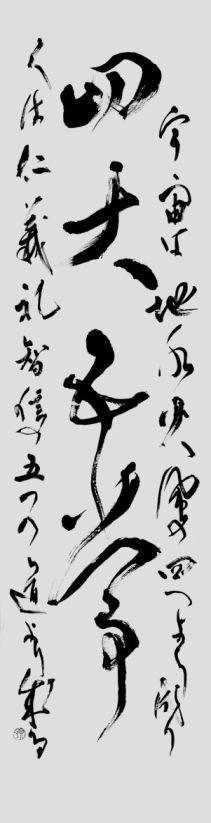 宇宙は地水火風の四つより成り
四大五常
人は仁義礼智信の五つの道